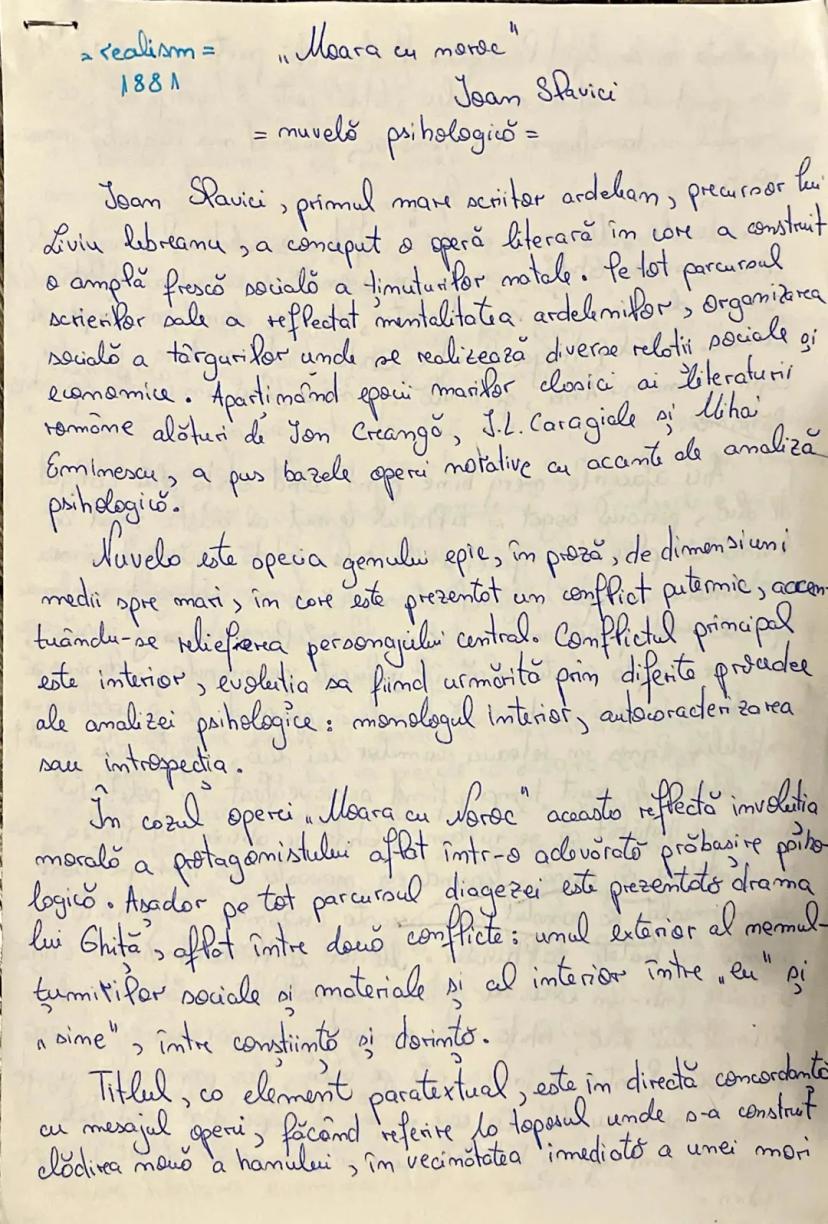 = realism = „Moara cu noroc"
1881
Ioan Slavici
= nuvelă psihologică =
Ioan Slavici, primul mare scriitor ardelean, precursor lui
Liviu Rebreanu, a conceput o operă literară în care a construit
o amplă frescă socială a ținuturilor natale. Pe tot parcursul
scrierilor sale a reflectat mentalitatea ardelenilor, organizarea
socială a târgurilor unde se realizează diverse relații sociale și
economice. Aparținând epocii marilor clasici ai literaturii
române alături de Ion Creangă, I.L. Caragiale și Mihai
Eminescu, a pus bazele operei narative cu accente de analiză
psihologică.
Nuvela este specia genului epic, în proză, de dimensiuni
medii spre mari, în care este prezentat un conflict puternic, accen-
tuându-se reliefarea personajului central. Conflictul principal
este interior, evoluția sa fiind urmărită prin diferite procedee
ale analizei psihologice: monologul interior, autocaracterizarea
sau introspecția.
În cazul operei „Moara cu Noroc" aceasta reflectă involuția
morală a protagonistului aflat într-o adevărată prăbușire psiho-
logică. Așadar pe tot parcursul diagezei este prezentată drama
lui Ghiță, aflat între două conflicte: unul exterior al nemul-
țumirilor sociale și materiale și al interior între „eu" și
„sine", între conștiință și dorință.
Titlul, ca element paratextual, este în directă concordanță
cu mesajul operei, făcând referire la toposul unde s-a construit
clădirea nouă a hanului, în vecinătatea imediată a unei mori